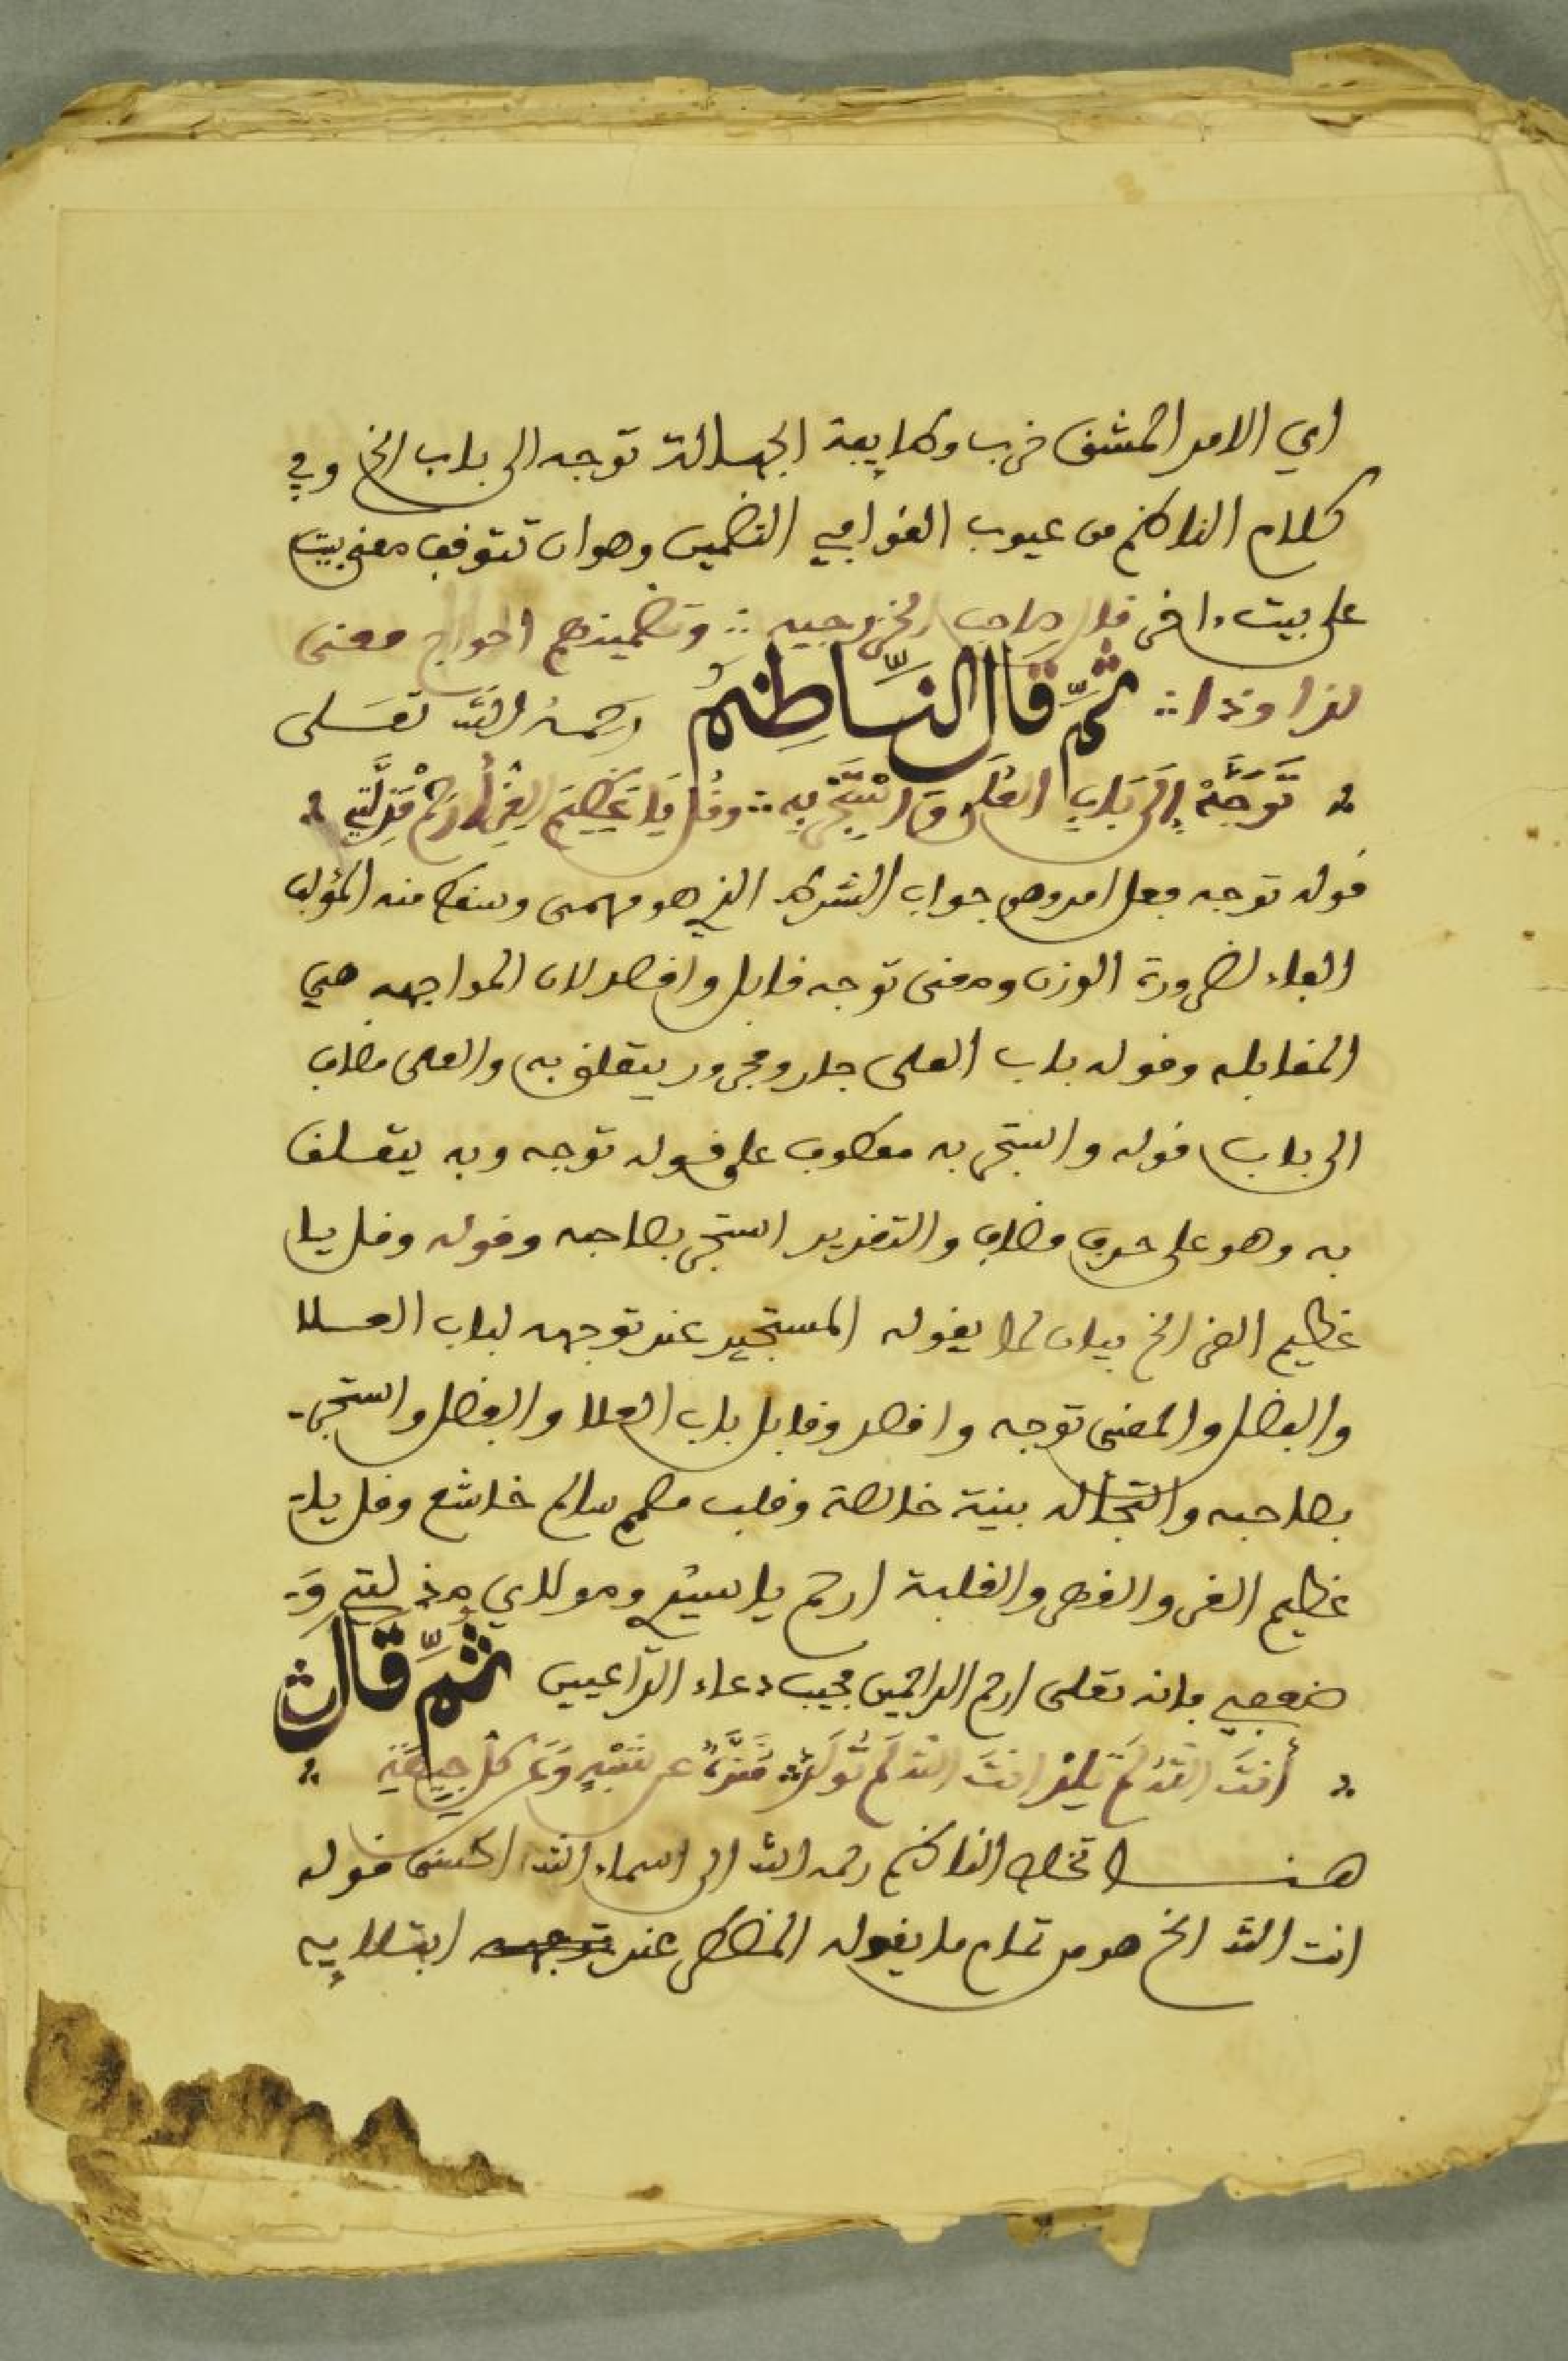 اي الامر المشق قرب وطايفة الجهالة توجه الى باب الخ وفي
كلام الناظم من عيوب القوافي التضمين وهو ان تتوقف معنى بيت
على بيت ءاخر قال صاحب الخزرجيه وتضمينها احواج معنى
لذا وذا ثُمَّ قَالَ النَّاظِمُ رحمهُ اللَّه تعلى
تَوَجَّهْ إِلَى بَابِ العُلَى وَاسْتَجِرْ بِهِ وقُل يَا عَظِيمَ العِزِّ ارْحَمْ مَذَلَّتِي
قوله توجه فعل امر وهو جواب الشرط الذي هو مهمى وسقط منه المؤلف
الفاء لضرورة الوزن ومعنى توجه قابل واقصد لان المواجهه هي
المقابله وقوله باب العلى جار ومجرور يتعلق به والعلى مضاف
الى باب قوله واستجر به معطوف على قوله توجه وبه يتعلق
به وهو على حذف مضاف والتقدير استجر بصاحبه وقوله وقل يا
عظيم العز الخ بيان لما يقوله المستجير عند توجهه لباب العلا
والفضل والمعنى توجه واقصد وقابل باب العلا والفضل واستجر
بصاحبه والتجا له بنية خالصة وقلب صميم سالم خاشع وقل يا
عظيم العز والقهر والغلبة ارحم يا سيدي ومولاي مذلتي و
ضعفي فانه تعلى ارحم الراحمين مجيب دعاء الدَّاعيين ثُمَّ قَالَ
أَنتَ اللَّه لَمْ تَلِدْ انتَ اللَّه لَمْ تُولَدْ مُنَزَّهٌ عن شَبْهٍ وَعَن كُلِّ جِهَةِ
هنا تخلص الناظم رحمه الله الى اسماء الله الحسنى قوله
انت الله الخ هو من تمام ما يقوله المضطر عند توجهه ابتلايه